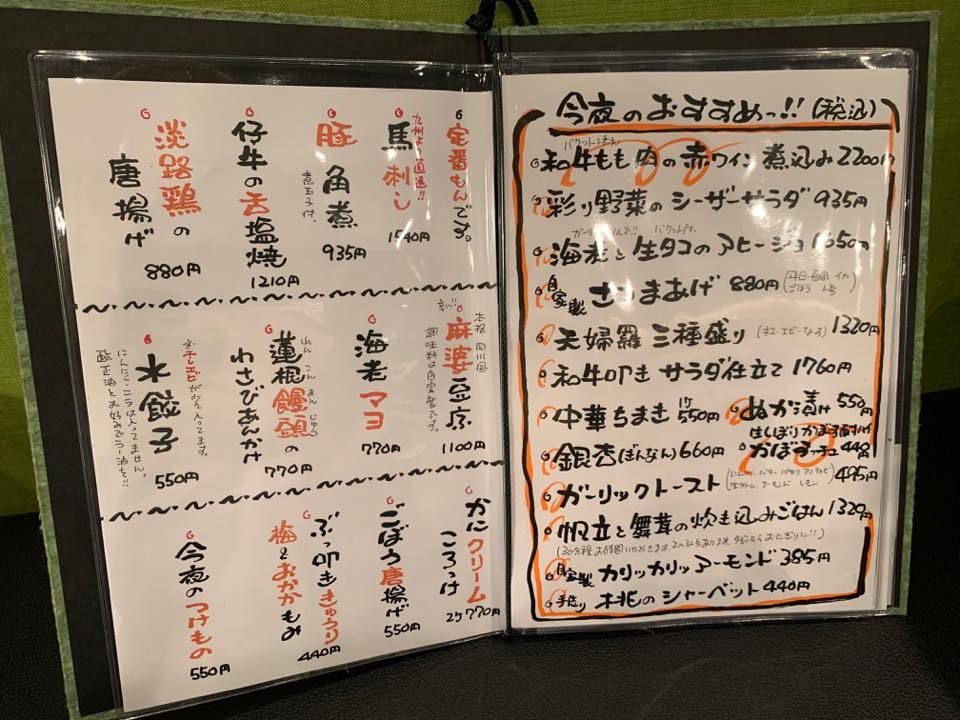 定番もんです。
九州より直送!!
馬刺し
1540円
豚角煮
煮玉子付、
935円
仔牛の舌塩焼
1210円
淡路鶏の
唐揚げ
880円
辛い!!
本格四川風
麻婆豆腐
調味料は自家製です。
1100円
海老マヨ
770円
れんこんまんじゅう
蓮根饅頭の
わさびあんかけ
770円
※干しエビが少々入ってます。
水餃子
にんにくニラは入ってません。
酢正油とお好みでラー油を!!
550円
かにクリーム
ころっけ
2ケ770円
ごぼう唐揚げ
550円
ぶっ叩ききゅうり
梅とおかかもみ
440円
今夜のつけもの
550円
今夜のおすすめっ!!(税込)
バケット2法え
和牛もも肉の赤ワイン煮込み2200円
彩り野菜のシーザーサラダ 935円
バケット付、
海老と生タコのアヒージョ 1650円
自家製 さつまあげ 880円
天婦羅三種盛り 1320円
和牛叩き サラダ仕立て 1760円
中華ちまき 1ケ550円
ぬか漬け 550円
はしぼりかぼす酎ハイ
440円
銀杏(ぎんなん) 660円
ガーリックトースト 495円
帆立と舞茸の炊き込みごはん 1320円
自家製 カリッカリッアーモンド 385円
手造り 桃のシャーベット 440円